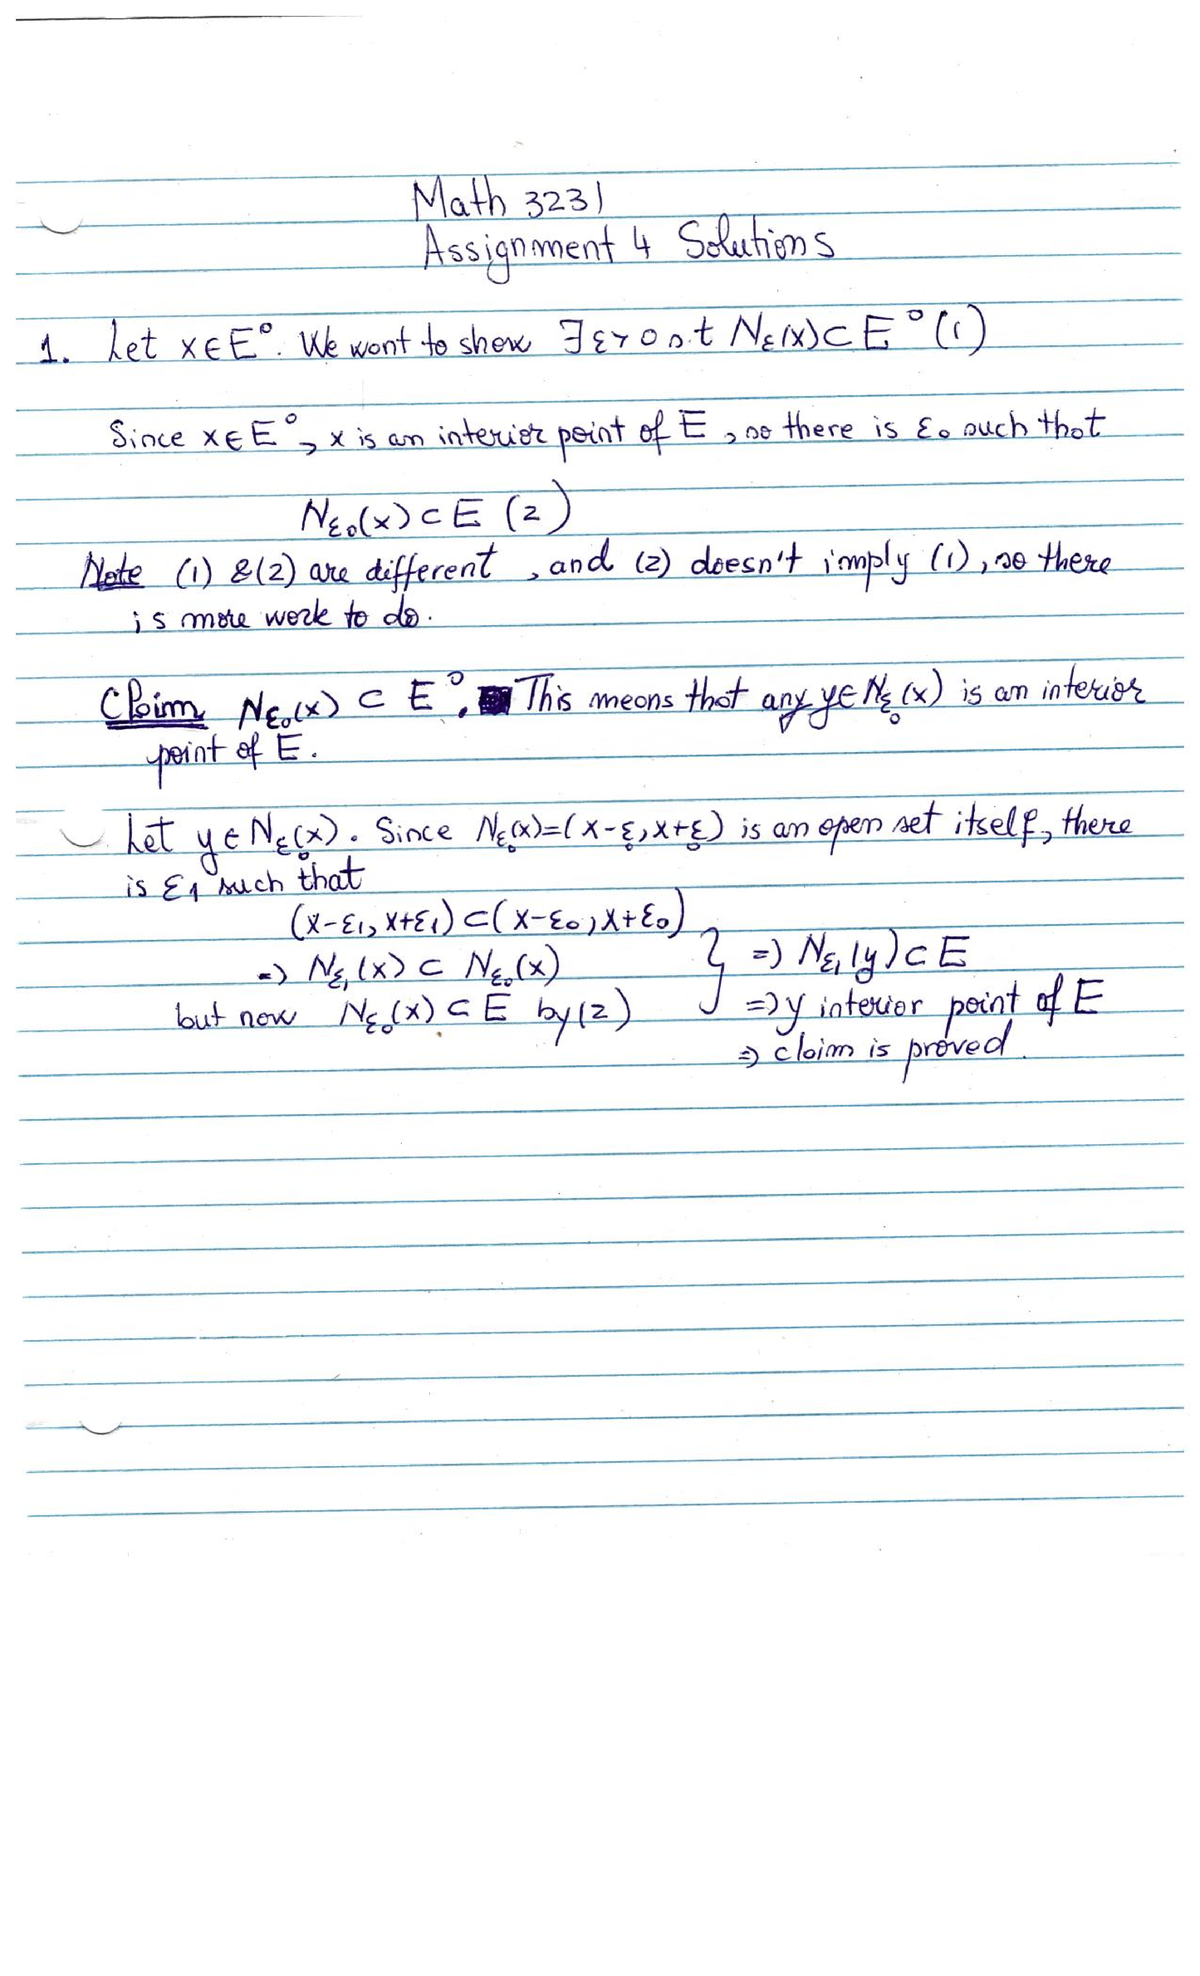 Math 3231
Assignment 4 Solutions
1. Let x∈E°. We want to show ∃ε>0 s.t Nε(x)⊂E° (1)
Since x∈E°, x is an interior point of E, so there is ε₀ such that
Nε₀(x)⊂E (2)
Note (1) &(2) are different, and (2) doesn't imply (1), so there
is more work to do.
Claim Nε₀(x) ⊂ E°. This means that any y∈Nε₀(x) is an interior
point of E.
Let y∈Nε₀(x). Since Nε₀(x)=(x-ε₀,x+ε₀) is an open set itself, there
is ε₁ such that
(x-ε₁,x+ε₁)⊂(x-ε₀,x+ε₀)
=> Nε₁(x)⊂ Nε₀(x) } => Nε₁(y)⊂E
but now Nε₀(x)⊂E by(2) =>y interior point of E
=> claim is proved.